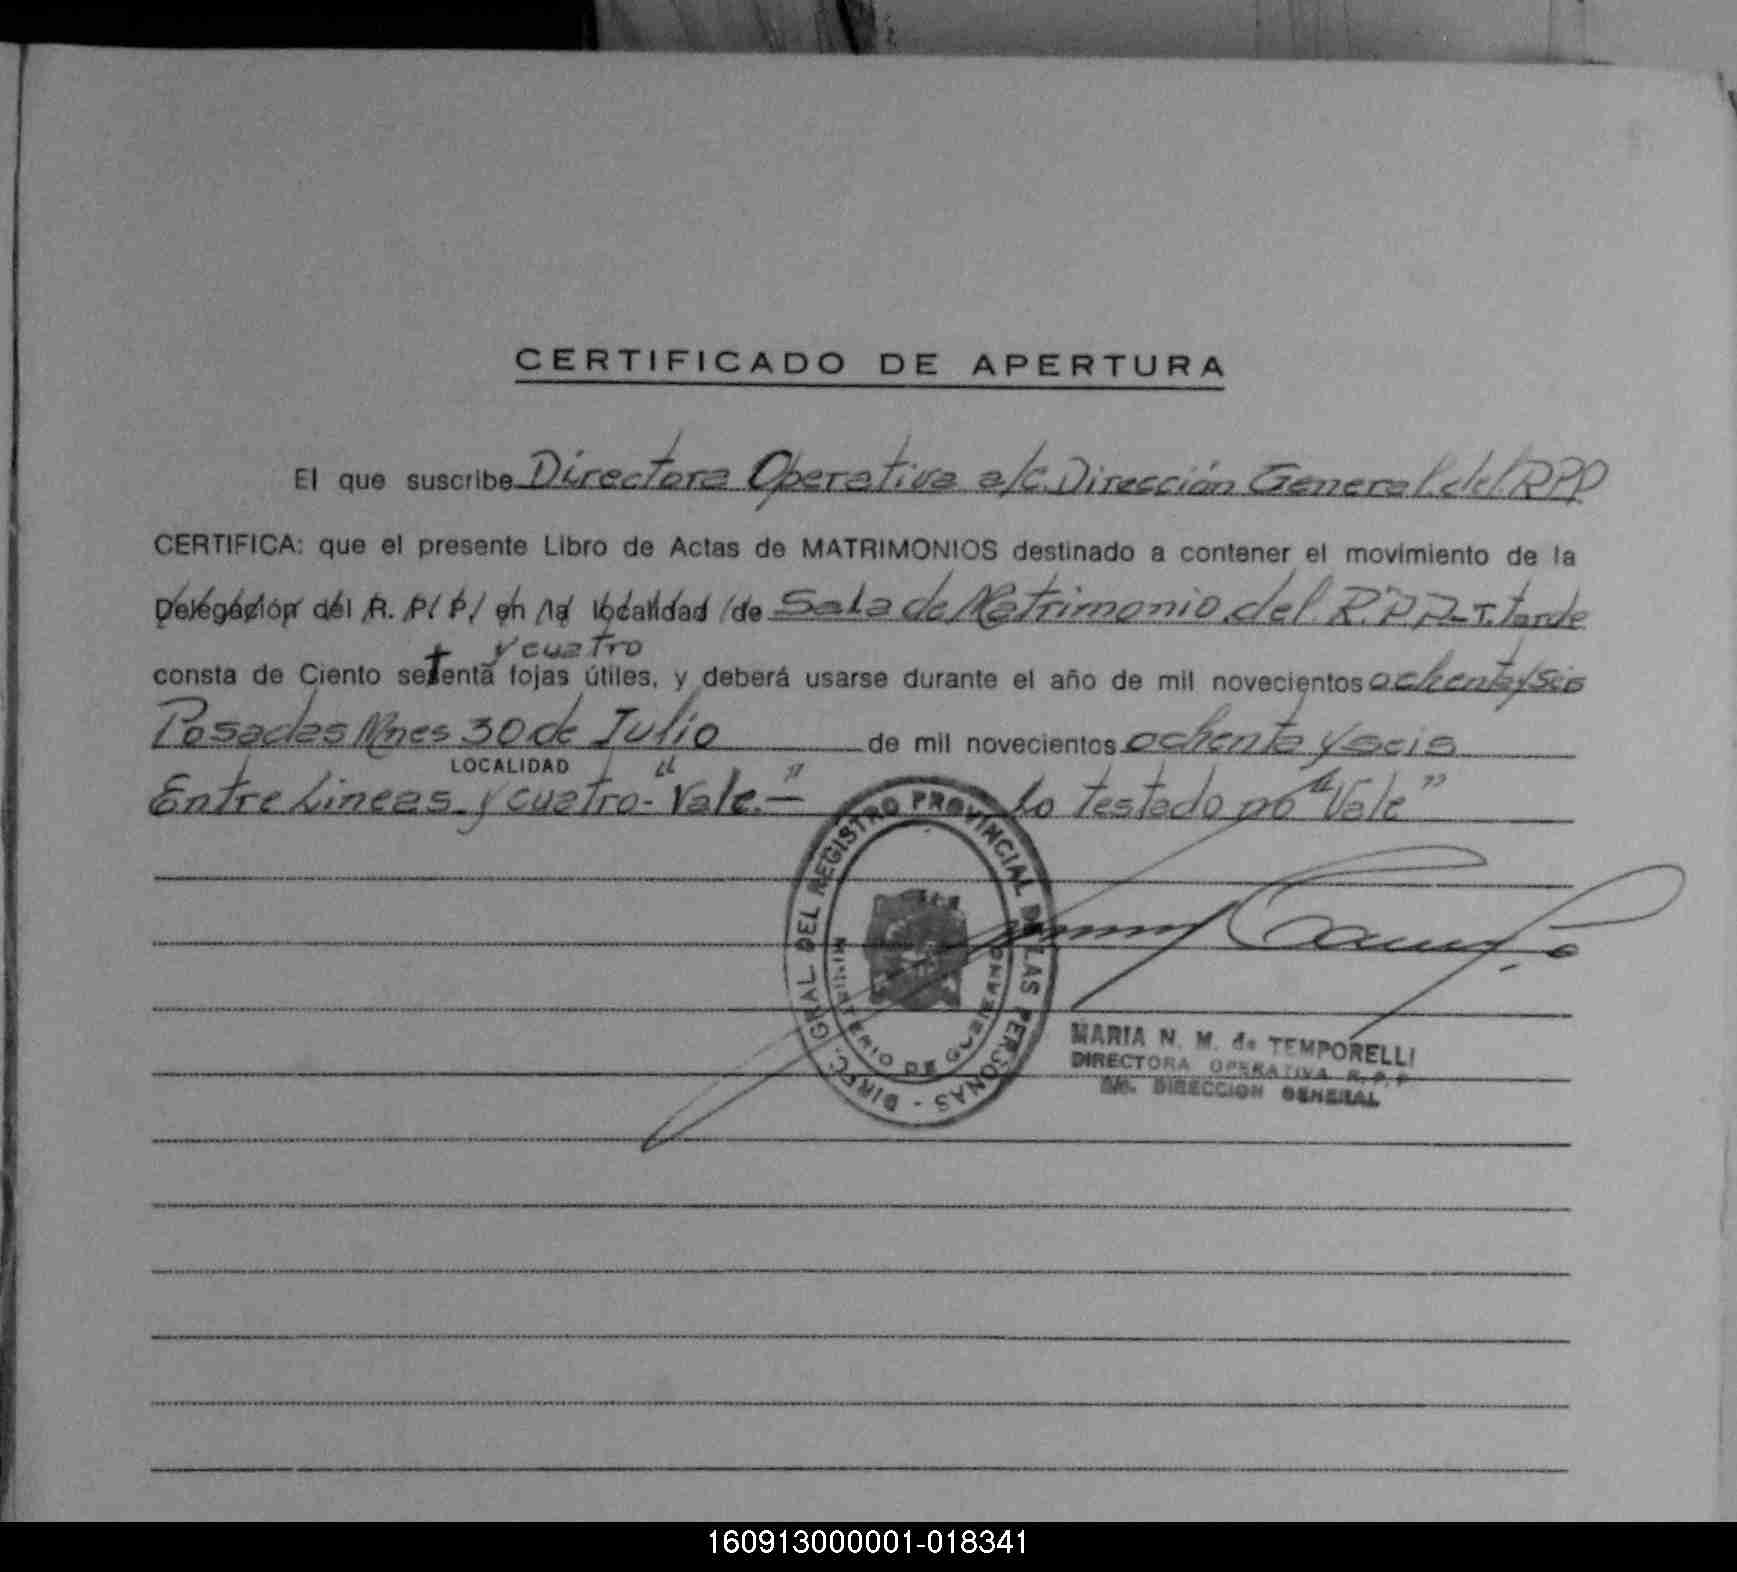 CERTIFICADO DE APERTURA
El que suscribe Directora Operativa a/c. Dirección General del RPP
CERTIFICA: que el presente Libro de Actas de MATRIMONIOS destinado a contener el movimiento de la
Delegación del R. P. P. en la localidad de Sala de Matrimonio del R.P.P.- T. tarde
y cuatro
consta de Ciento setenta fojas útiles, y deberá usarse durante el año de mil novecientos ochenta y seis
Posadas Mnes 30 de Julio de mil novecientos ochenta y seis
LOCALIDAD
Entre Lineas y cuatro - "Vale. -" lo testado no "Vale"
DIREC. GRAL DEL REGISTRO PROVINCIAL DE LAS PERSONAS -
MINISTERIO DE GOBIERNO
MARIA N. M. de TEMPORELLI
DIRECTORA OPERATIVA R. P. P.
DIRECCION GENERAL
160913000001-018341